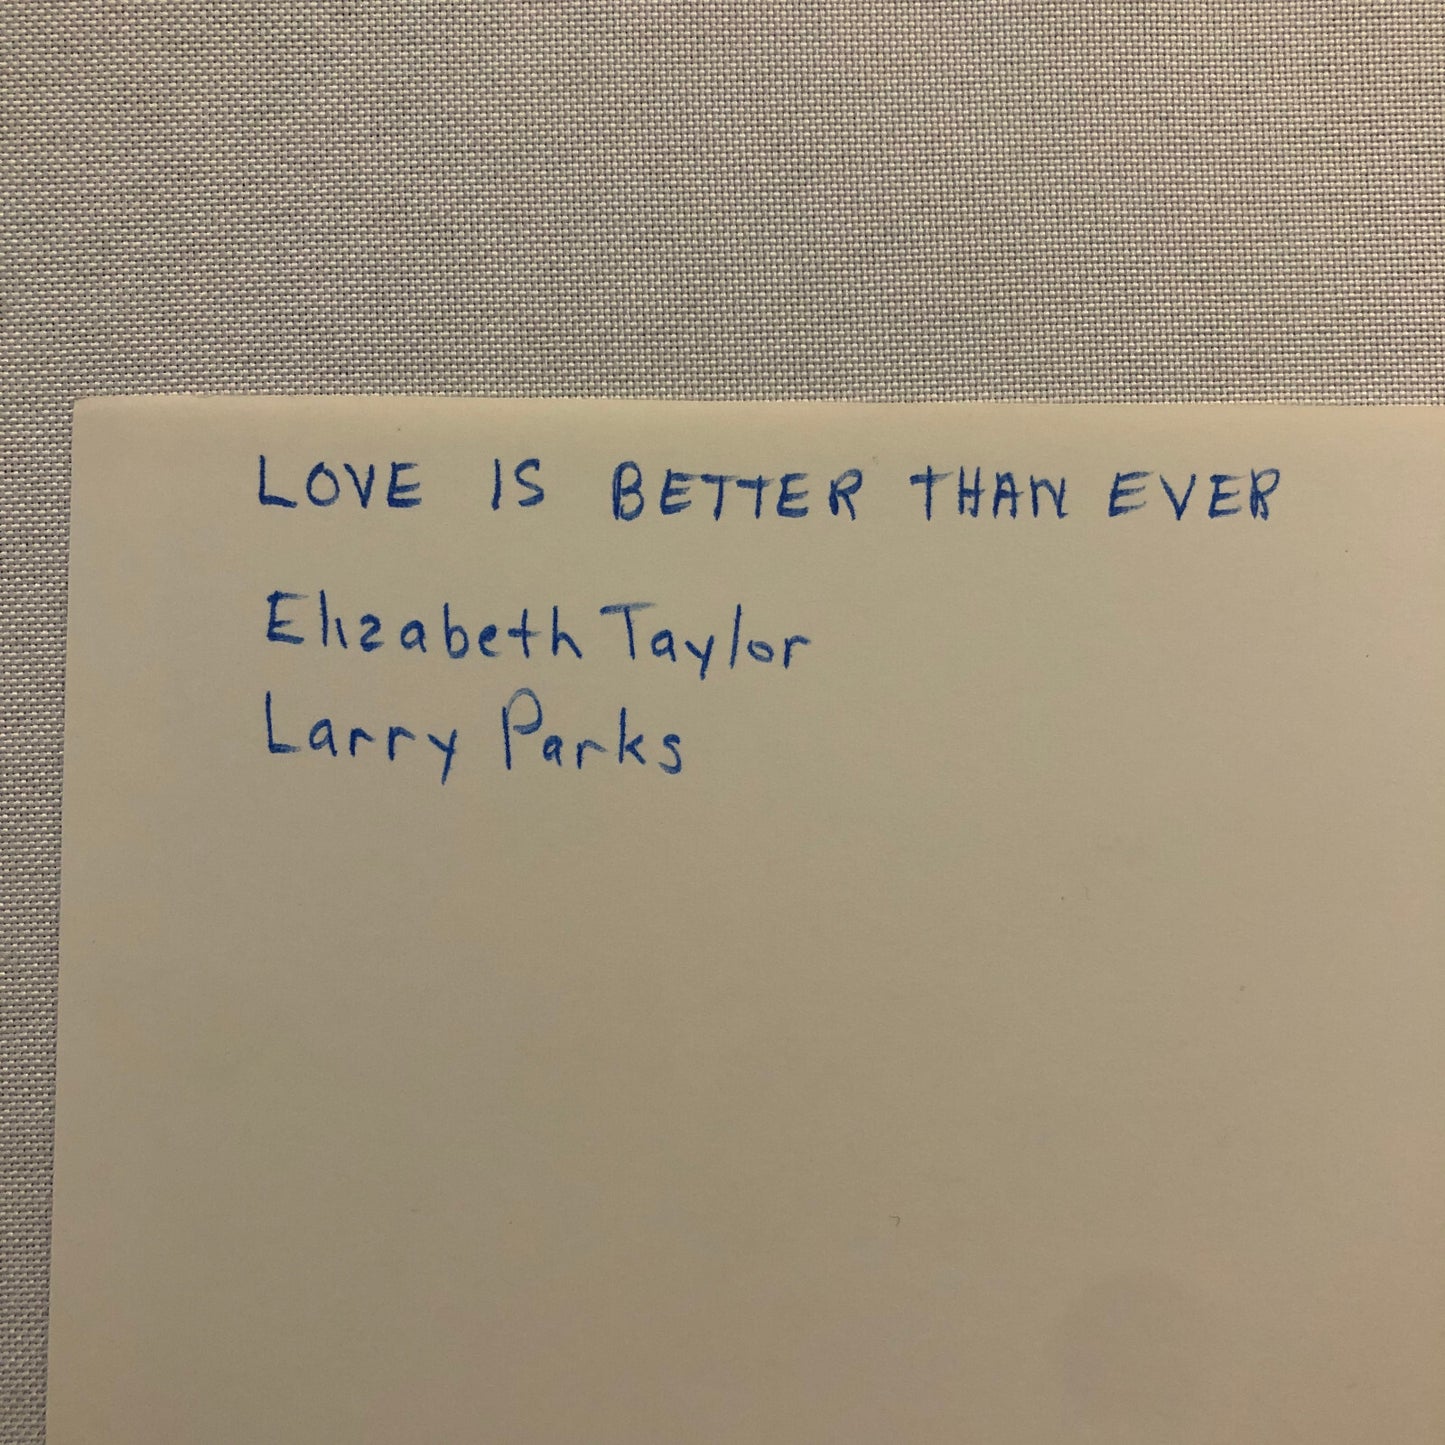 LOVE IS BETTER THAN EVER
Elizabeth Taylor
Larry Parks